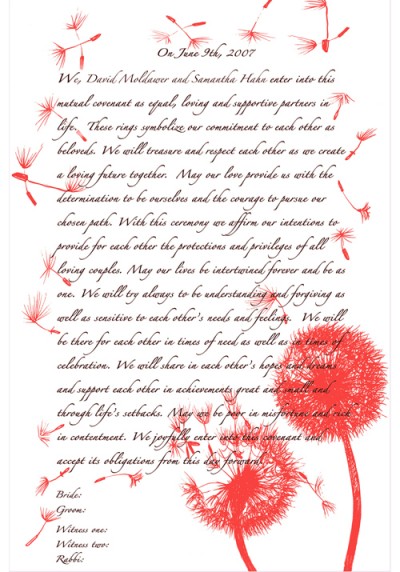 On June 9th, 2007
We, David Moldawer and Samantha Hahn enter into this
mutual covenant as equal, loving and supportive partners in
life. These rings symbolize our commitment to each other as
beloveds. We will treasure and respect each other as we create
a loving future together. May our love provide us with the
determination to be ourselves and the courage to pursue our
chosen path. With this ceremony we affirm our intentions to
provide for each other the protections and privileges of all
loving couples. May our lives be intertwined forever and be as
one. We will try always to be understanding and forgiving as
well as sensitive to each other's needs and feelings. We will
be there for each other in times of need as well as in times of
celebration. We will share in each other's hopes and dreams
and support each other in achievements great and small and
through life's setbacks. May we be poor in misfortune and rich
in contentment. We joyfully enter into this covenant and
accept its obligations from this day forward.
Bride:
Groom:
Witness one:
Witness two:
Rabbi: